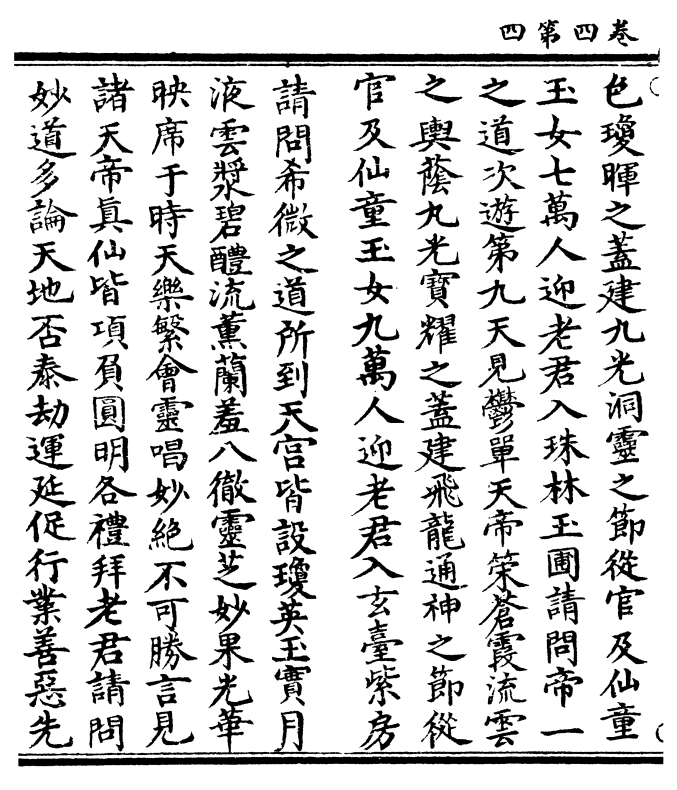 卷四第四
色瓊暉之蓋建九光洞靈之節從官及仙童
玉女七萬人迎老君入珠林玉圃請問帝一
之道次遊第九天見鬱單天帝策蒼霞流雲
之輿蔭九光寶耀之蓋建飛龍通神之節從
官及仙童玉女九萬人迎老君入玄臺紫房
請問希微之道所到天宮皆設瓊英玉實月
液雲漿碧醴流薰蘭羞八徹靈芝妙果光華
映席于時天樂繁會靈唱妙絕不可勝言見
諸天帝眞仙皆項負圓明各禮拜老君請問
妙道多論天地否泰劫運延促行業善惡先